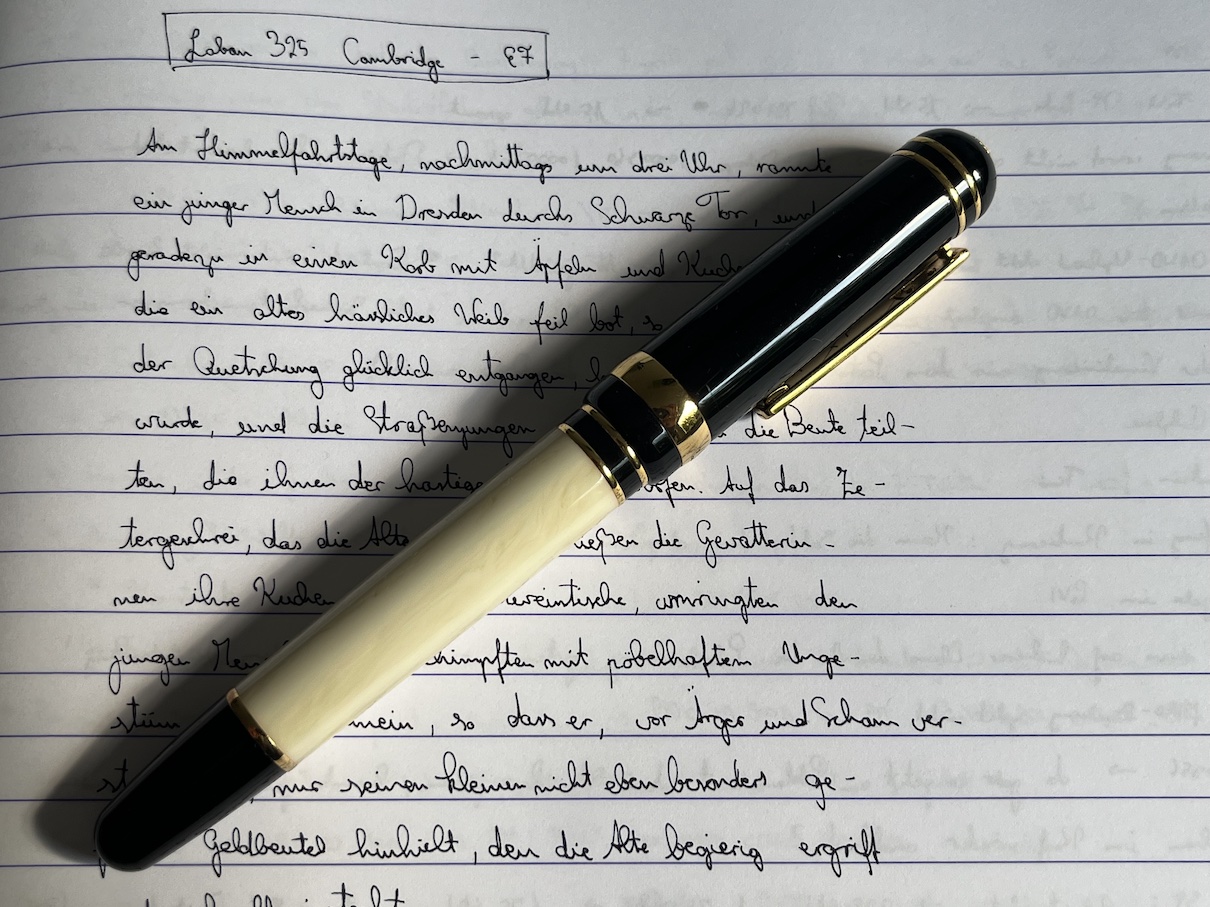 Laban 325 Cambridge - EF
Am Himmelfahrtstage, nachmittags um drei Uhr, rannte
ein junger Mensch in Dresden durchs Schwarze Tor, und
geradezu in einen Korb mit Äpfeln und Kuche
die ein altes hässliches Weib feil bot, so
der Quetschung glücklich entgangen, h
wurde, und die Straßenjungen die Beute teil-
ten, die ihnen der hastige rfen. Auf das Ze-
tergeschrei, das die Alte ießen die Gevatterin-
nen ihre Kuchen weintische, umringten den
jungen Men himpften mit pöbelhaftem Unge-
stüm mein, so dass er, vor Ärger und Scham ver-
st , nur seinen kleinen nicht eben besonders ge-
Geldbeutel hinhielt, den die Alte begierig ergriff